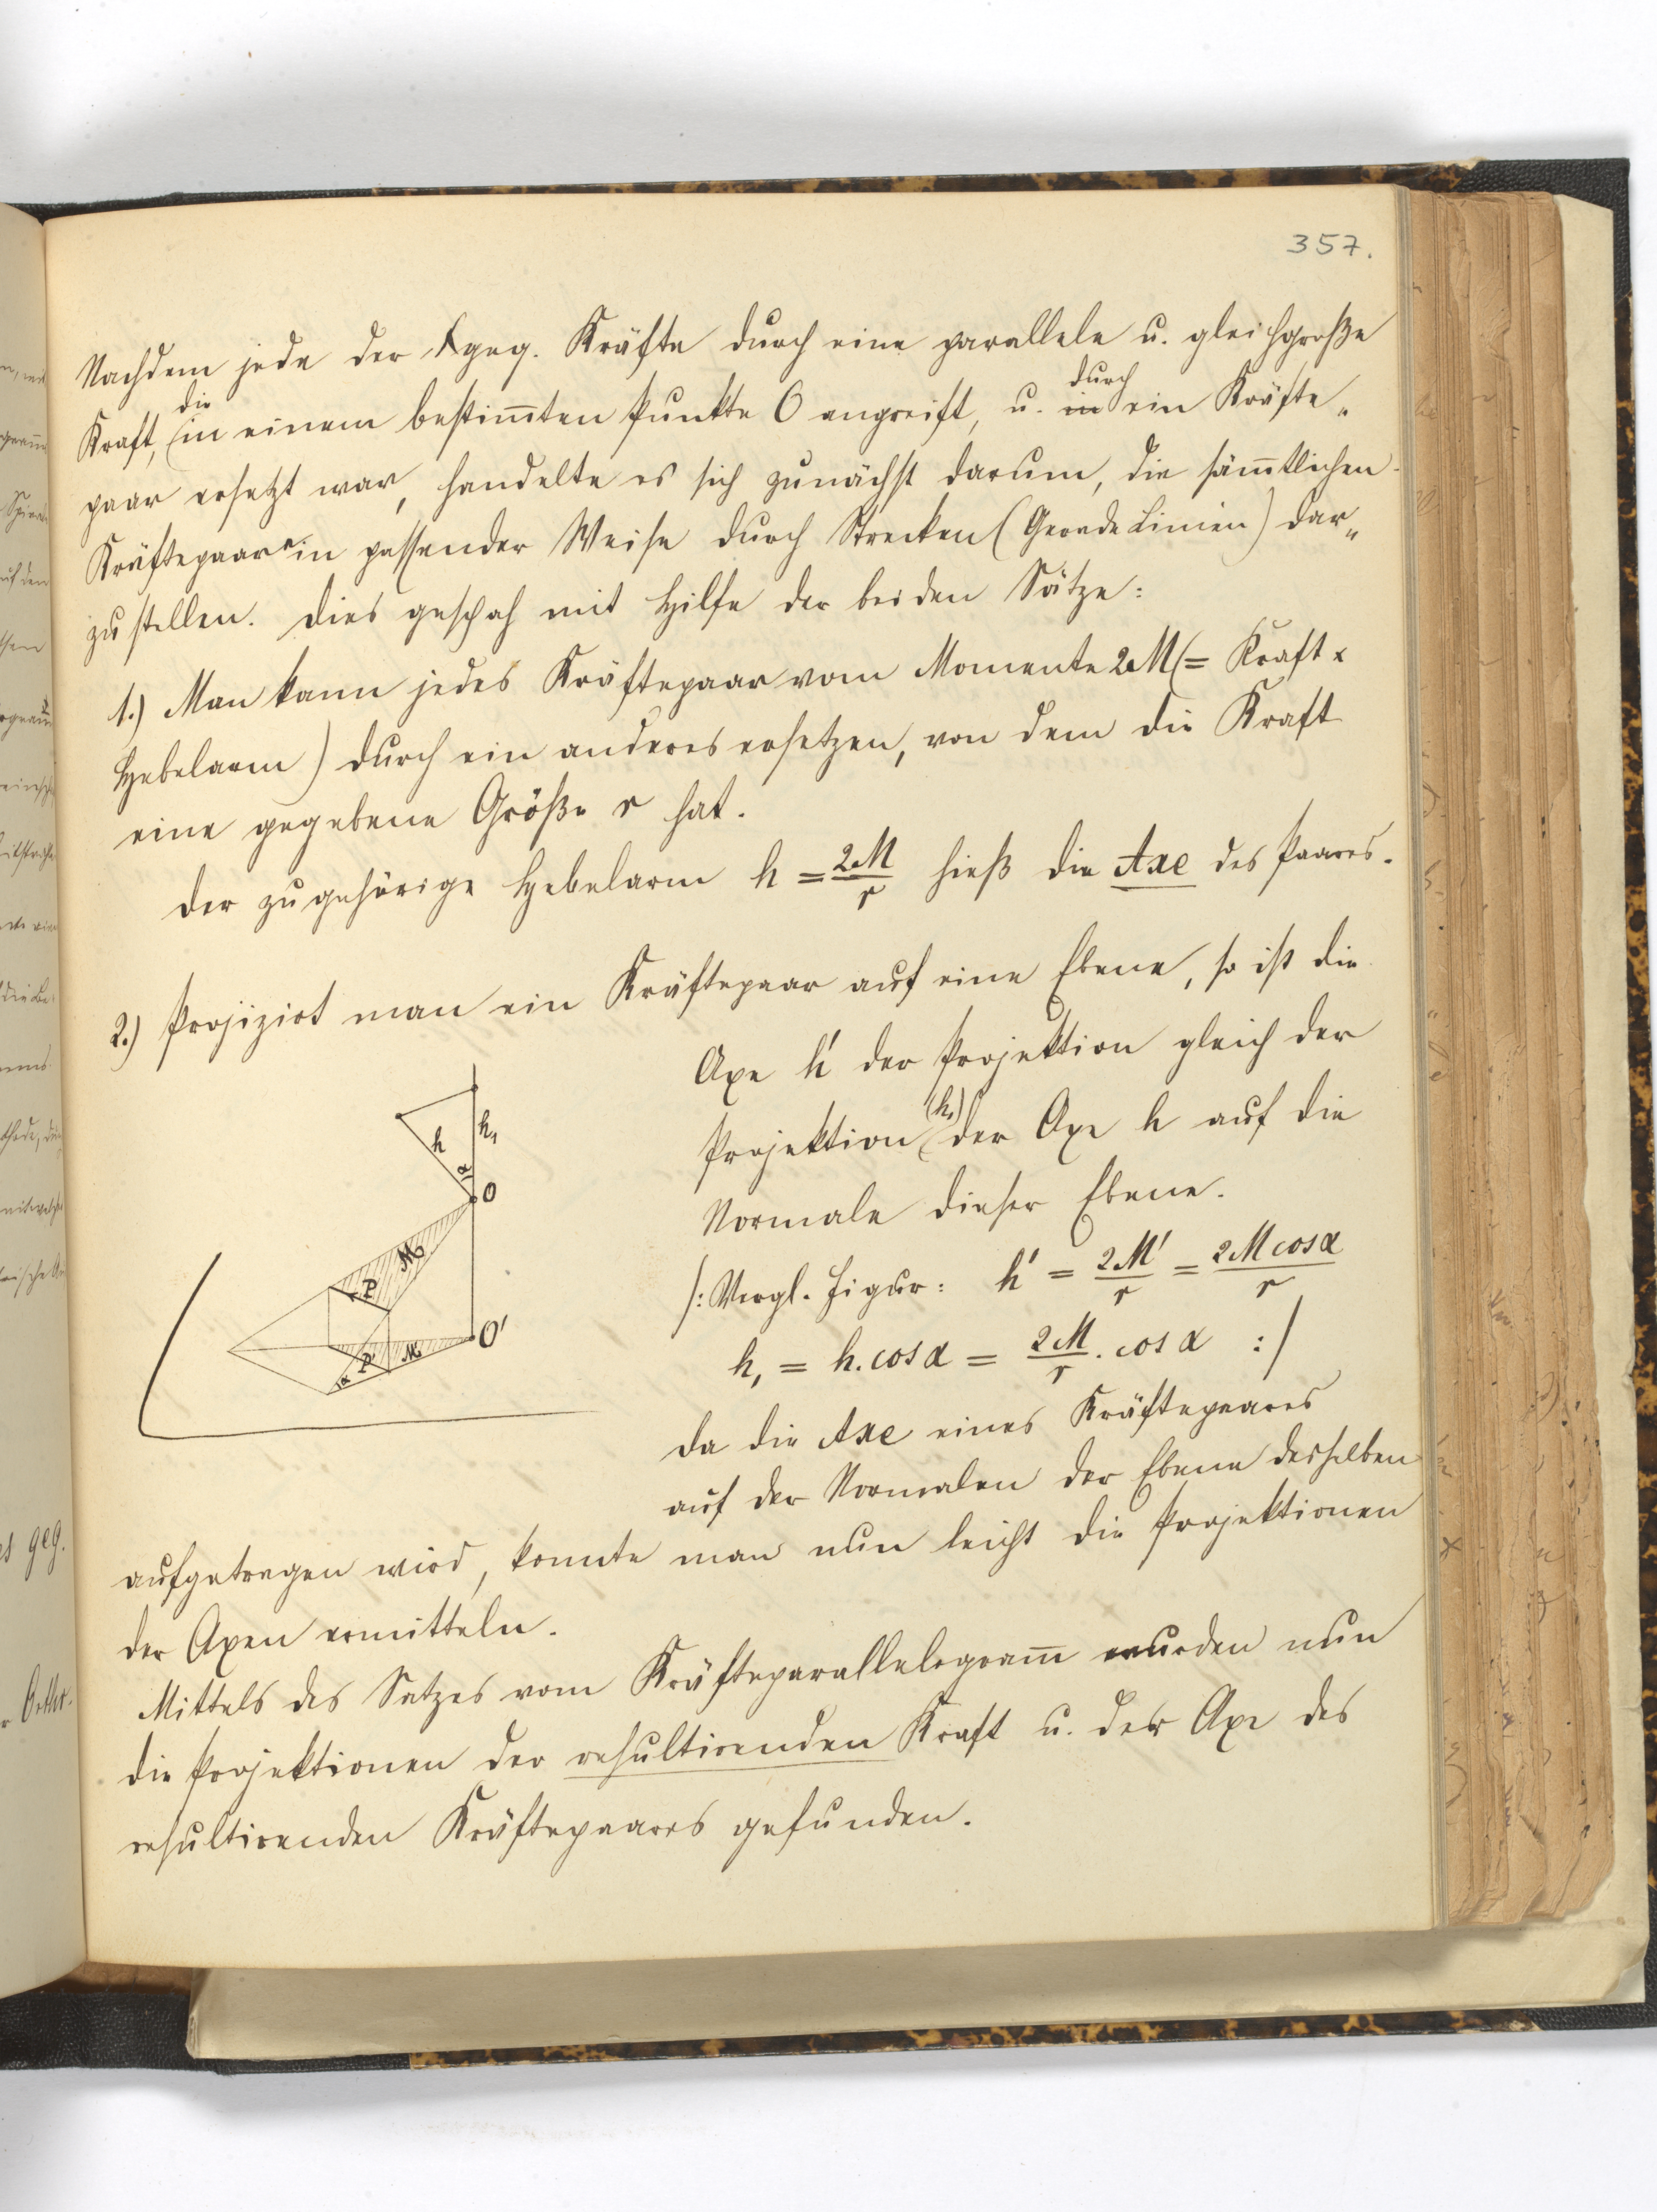 357.
Nachdem jede der geg. Kräfte durch eine parallele u. gleichgroße
Kraft, die in einem bestim̄ten Punkte O angreift, u. in durch ein Kräfte„
paar ersetzt war, handelte es sich zunächst darum, die säm̄tlichen
Kräftepaare in passender Weise durch Strecken (Gerade Linien) dar„
zustellen. Dies geschah mit Hilfe der beiden Sätze:
1.) Man kann jedes Kräftepaar vom Momente 2M (= Kraft x
Hebelarm) durch ein anderes ersetzen, von dem die Kraft
eine gegebene Größe r hat.
Der zugehörige Hebelarm h = 2M/r hieß die Axe des Paares.
2.) Projizirt man ein Kräftepaar auf eine Ebene, so ist die
Axe h' der Projektion gleich der
Projektion (h₁) der Axe h auf die
Normale dieser Ebene.
/: Vergl. Figur: h' = 2M'/r = 2M cos α/r
h₁ = h. cos α = 2M/r . cos α :/
Da die Axe eines Kräftepaares
auf der Normalen der Ebene desselben
aufgetragen wird, konnte man nun leicht die Projektionen
der Axen ermitteln.
Mittels des Satzes vom Kräfteparallelogram̄ wurden nun
die Projektionen der resultirenden Kraft u. der Axe des
resultirenden Kräftepaares gefunden.
h
h₁
α
O
M
P
O'
P'
M'
α
geg.